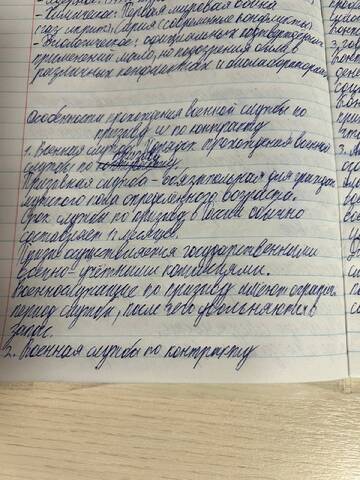 - Химическое: Первая мировая война
(газ иприт), Сирия (современные конфликты)
- Биологическое: официальных подтверждений
применений мало, но подозрения были в
различных конфликтах и биолабораториях
Особенности прохождения военной службы по
призыву и по контракту
1. Военная служба порядок прохождения военной
службы по призыву
Призывная служба - обязательная для граждан
мужского пола определенного возраста.
Срок службы по призыву в России обычно
составляет 12 месяцев.
Призыв осуществляется государственными
военно-учётными комиссиями.
Военнослужащие по призыву имеют огранич.
период службы, после чего увольняются в
запас.
2. Военная службы по контракту